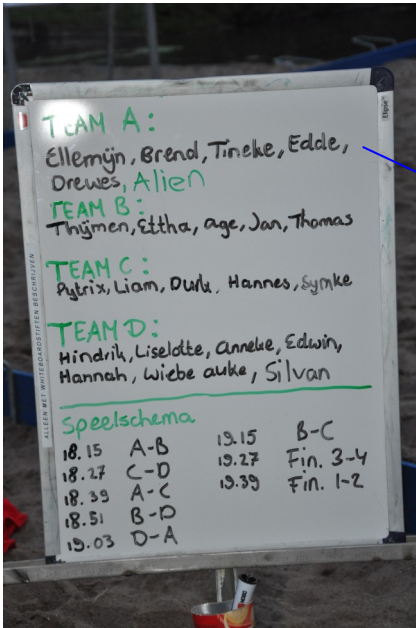 TEAM A:
Ellemijn, Brend, Tineke, Edde,
Drewes, Alien
TEAM B:
Thijmen, Ettha, age, Jan, Thomas
TEAM C:
Pytrix, Liam, Durk, Hannes, Symke
TEAM D:
Hindrik, Liselotte, Anneke, Edwin,
Hannah, Wiebe auke, Silvan
Speelschema
18.15 A-B
18.27 C-D
18.39 A-C
18.51 B-D
19.03 D-A
19.15 B-C
19.27 Fin. 3-4
19.39 Fin. 1-2
ALLEEN MET WHITEBOARDSTIFTEN BESCHRIJVEN